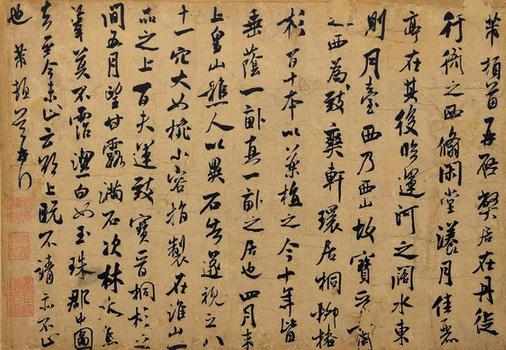 芾頓首再啟弊居在丹徒
行衙之西翛閑堂漾月佳麗
亭在其後臨運河之闊水東
則月臺西乃西山故寶晉齋
之西為致爽軒環居桐柳椿
杉百十本以藥植之今十年皆
垂蔭一畝真一畝之居也四月末
上皇山樵人以異石告遂視之八
十一穴大如椀小容指製在淮山一
品之上百夫運致寶晉桐杉之
間五月望甘露滿石次林木焦
葦莫不霑潔白如玉珠郡中圖
去至今未止云欲上既不請亦不止
也芾頓首再拜